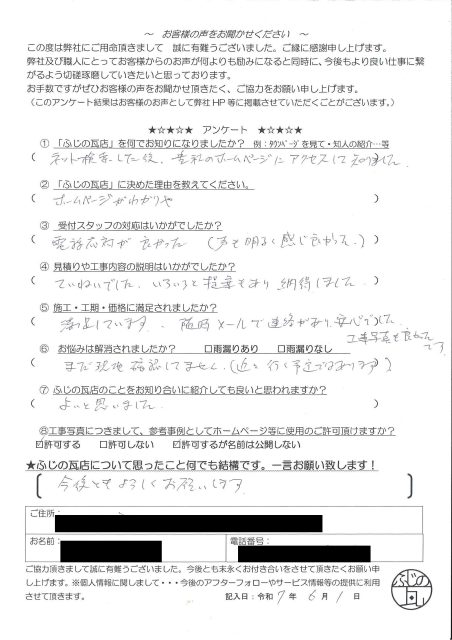 ～ お客様の声をお聞かせください ～
この度は弊社にご用命頂きまして 誠に有難うございました。ご縁に感謝申し上げます。
弊社及び職人にとってお客様からのお声が何よりも励みになると同時に、今後もより良い仕事に繋
がるよう切磋琢磨していきたいと思っております。
お手数ですがぜひお客様の声をお聞かせ頂きたく、ご協力をお願い申し上げます。
（このアンケート結果はお客様のお声として弊社HP等に掲載させていただくことがございます。）
★☆★☆★ アンケート ★☆★☆★
① 「ふじの瓦店」を何でお知りになりましたか？ 例：タウンページを見て・知人の紹介…等
( ネット検索した後、貴社のホームページにアクセスして知りました。 )
② 「ふじの瓦店」に決めた理由を教えてください。
( ホームページがわかりや )
③ 受付スタッフの対応はいかがでしたか？
( 電話応対が良かった（声も明るく感じ良かった。） )
④ 見積りや工事内容の説明はいかがでしたか？
( ていねいでした。いろいろと提案もあり 納得しました )
⑤ 施工・工期・価格に満足されましたか？
( 満足しています。随時メールで連絡があり、安心でした。
工事写真も良かった
です
⑥ お悩みは解消されましたか？ □雨漏りあり □雨漏りなし
( まだ現地確認してません。（近々行く予定であります） )
⑦ ふじの瓦店のことをお知り合いに紹介しても良いと思われますか？
( よいと思いました )
⑧工事写真につきまして、参考事例としてホームページ等に使用のご許可頂けますか？
☑許可する □許可しない ☑許可するが名前は公開しない
★ふじの瓦店について思ったこと何でも結構です。一言お願い致します！
今後ともよろしくお願いします
ご住所：
お名前： 電話番号：
ご協力頂きまして誠に有難うございました。今後とも末永くお付き合いをさせて頂きたくお願い申
し上げます。※個人情報に関しまして・・・今後のアフターフォローやサービス情報等の提供に利用
させて頂きます。 記入日：令和 7 年 6 月 1 日
ふじの